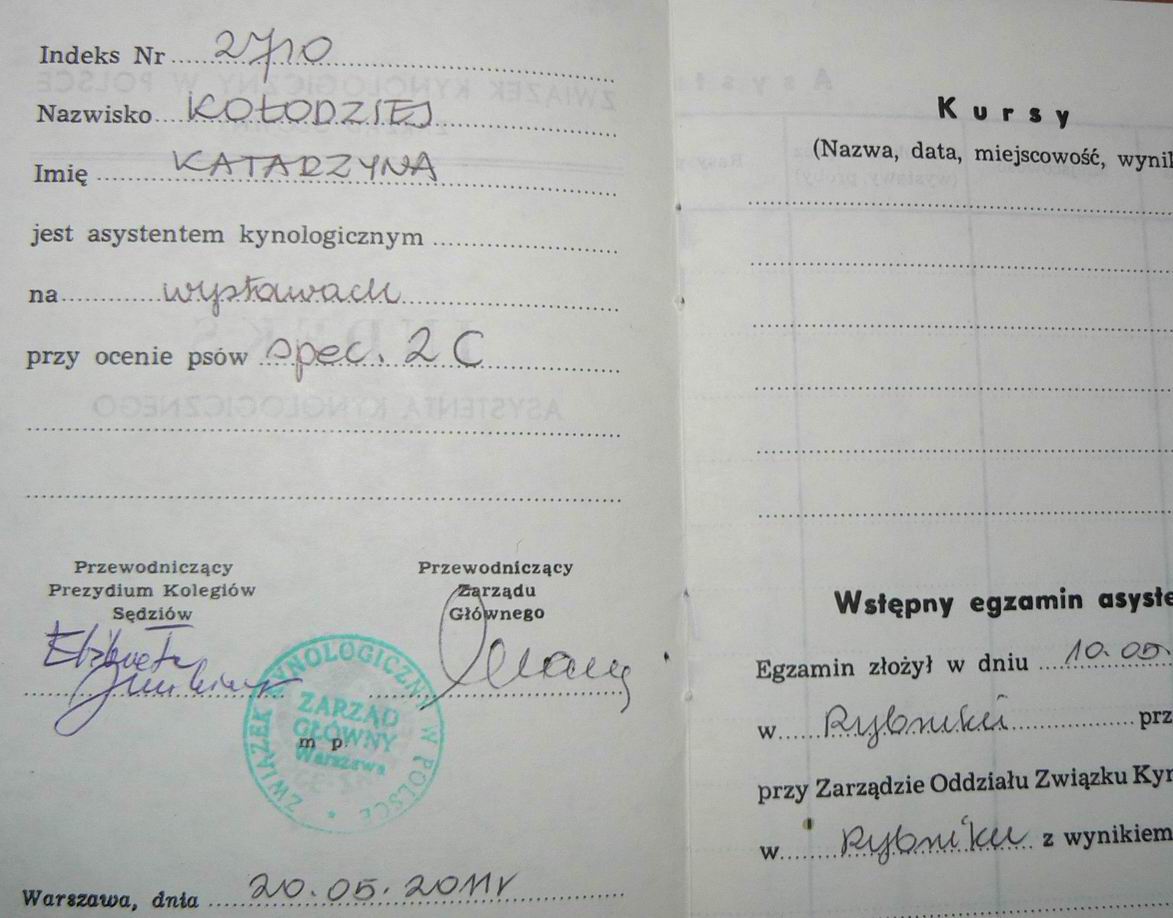 Indeks Nr 2710
Nazwisko KOŁODZIEJ
Imię KATARZYNA
jest asystentem kynologicznym
na wystawach
przy ocenie psów spec. 2 C
Przewodniczący
Prezydium Kolegiów
Sędziów
Przewodniczący
Zarządu
Głównego
Elżbieta
ZWIĄZEK KYNOLOGICZNY W POLSCE
ZARZĄD
GŁÓWNY
Warszawa
m p.
Warszawa, dnia 20.05.2011r
Kursy
(Nazwa, data, miejscowość, wynik
Wstępny egzamin asyste
Egzamin złożył w dniu 10.05.
w Rybniku prz
przy Zarządzie Oddziału Związku Kyn
w Rybniku z wynikiem